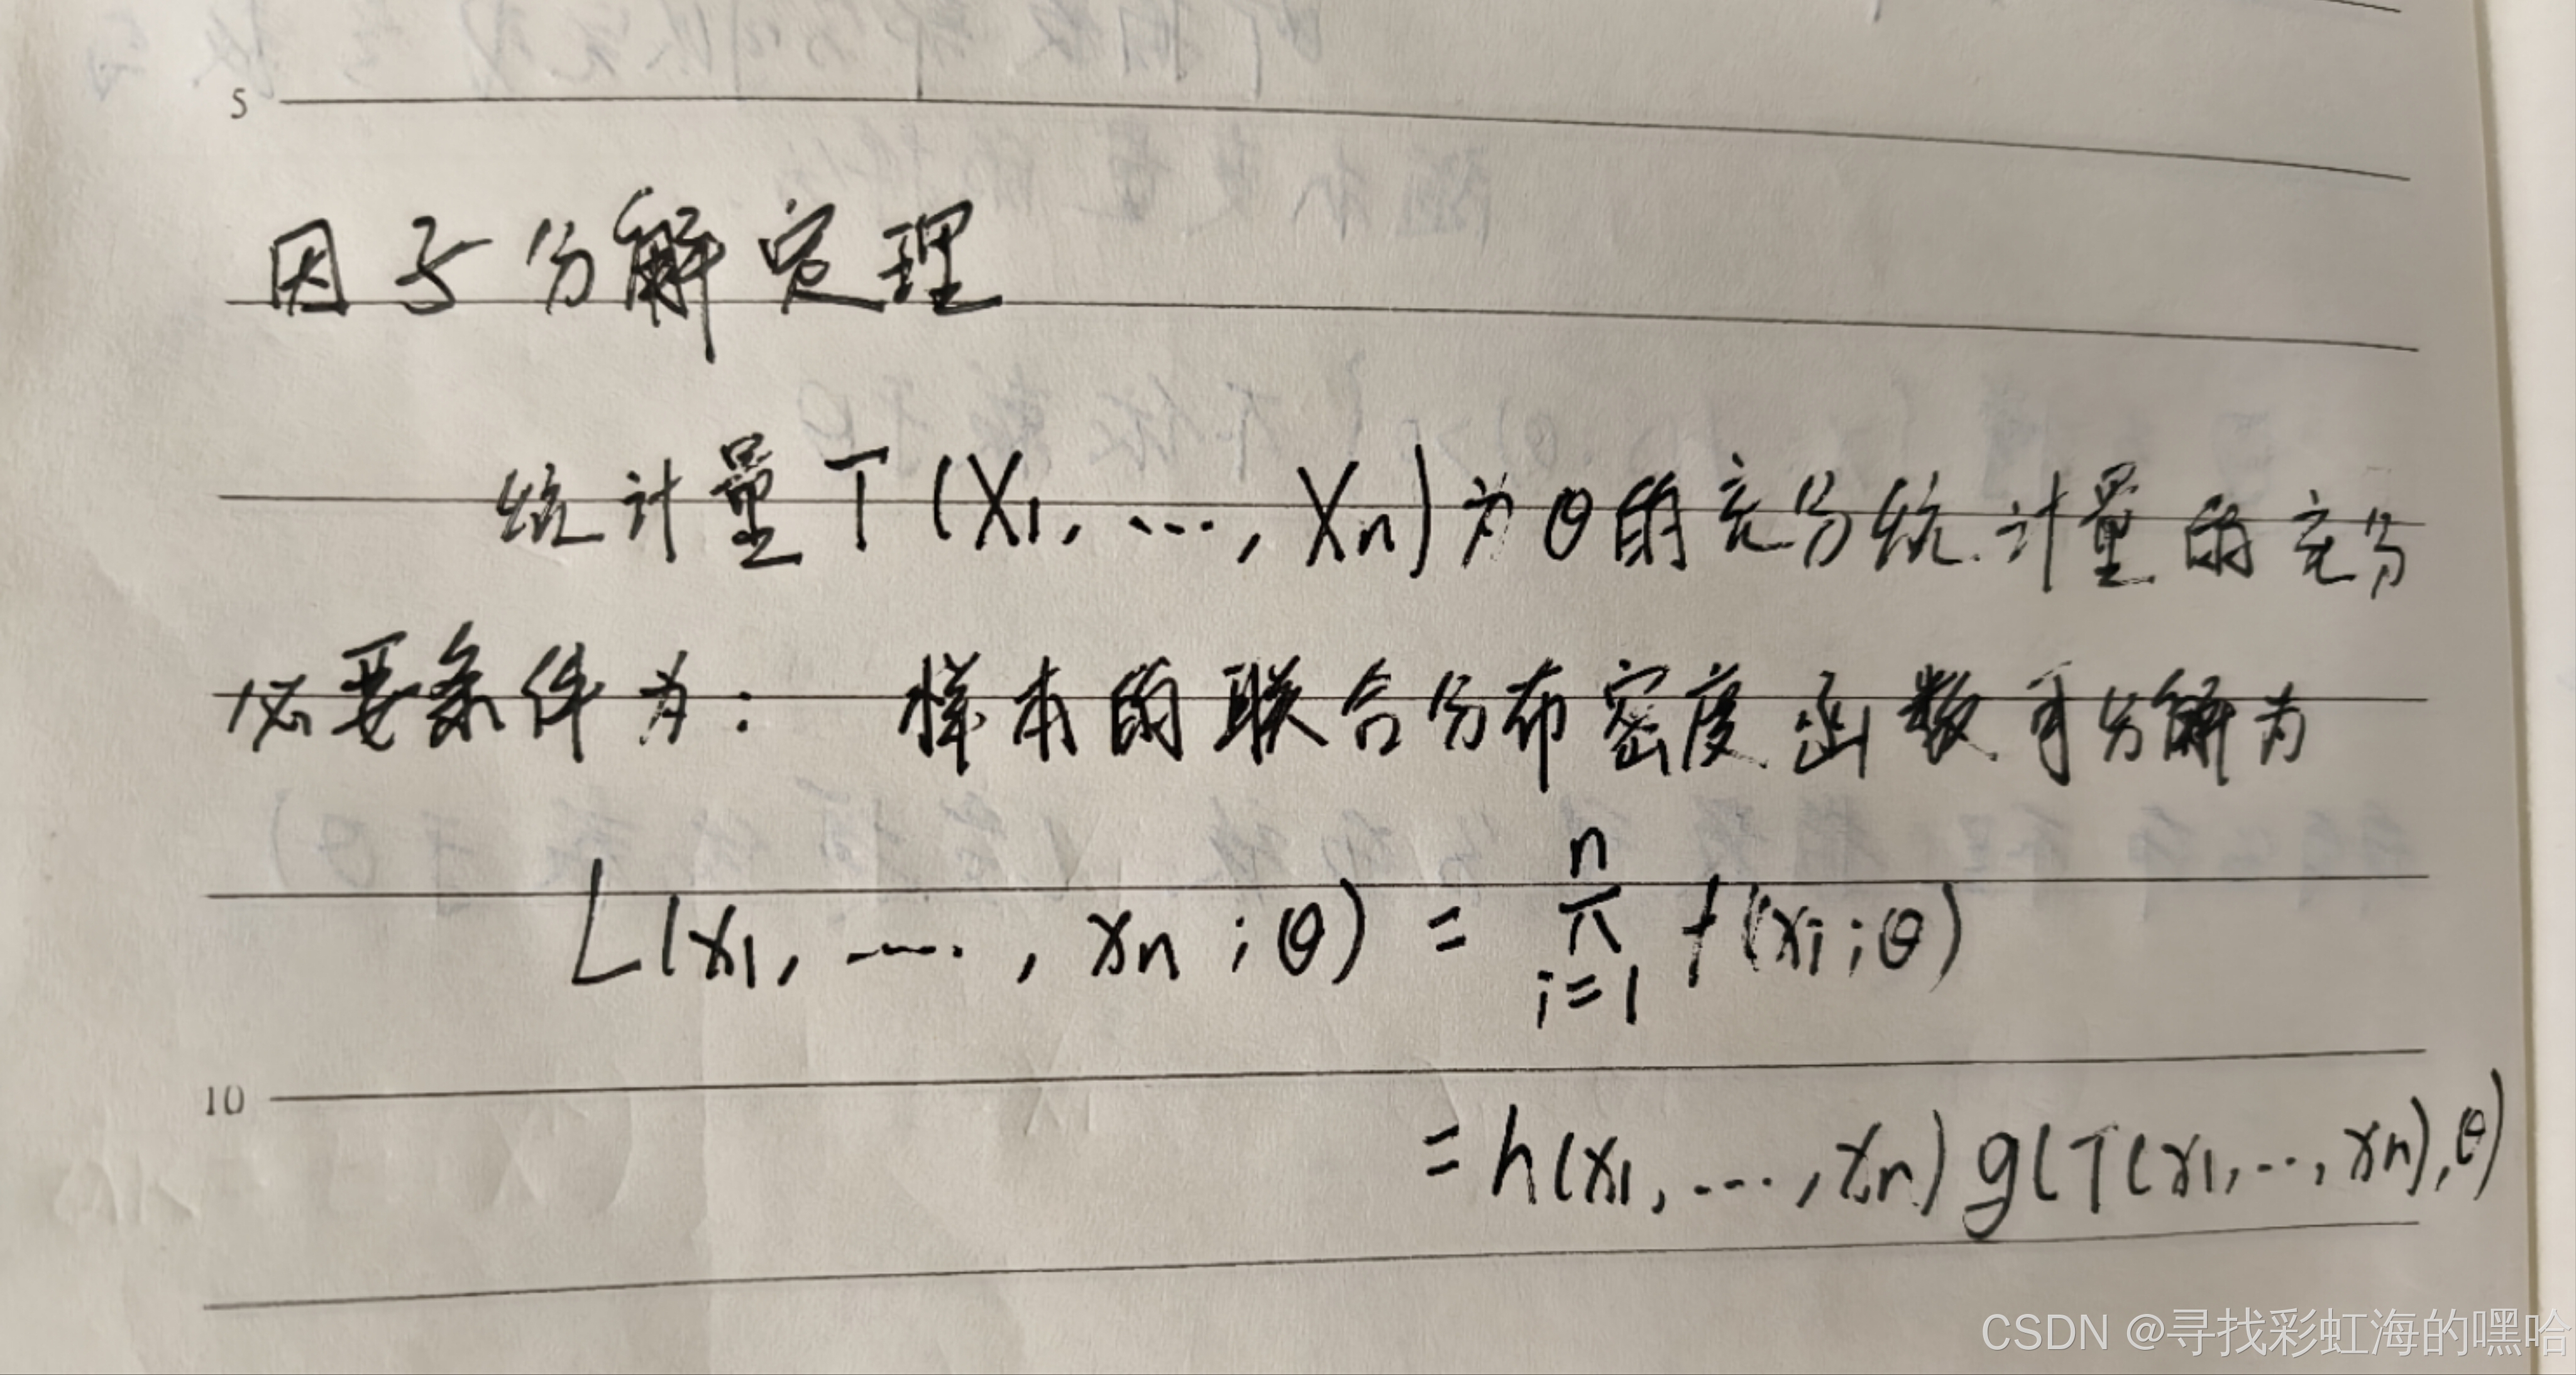 5
因子分解定理
统计量T(X1, ..., Xn)为θ的充分统计量的充分
必要条件为: 样本的联合分布密度函数可分解为
L(x1, ..., xn ; θ) = ∏_{i=1}^{n} f(xi ; θ)
10
= h(x1, ..., xn) g(T(x1, ..., xn), θ)
CSDN @寻找彩虹海的嘿哈